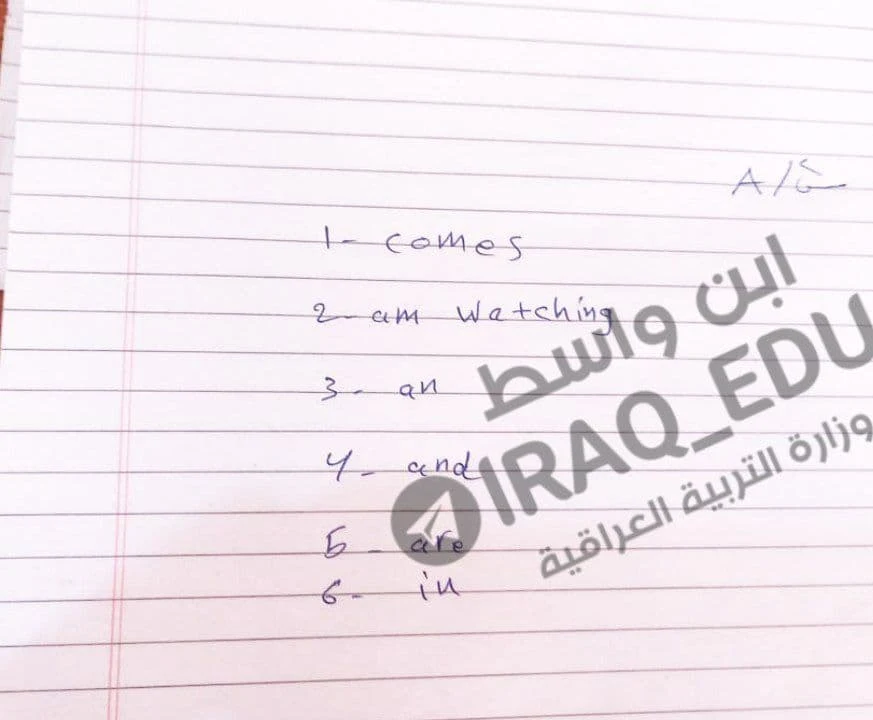 A/ث
1- comes
2- am watching
3- an
4- and
5- are
6- in
ابن واسط
IRAQ_EDU
وزارة التربية العراقية